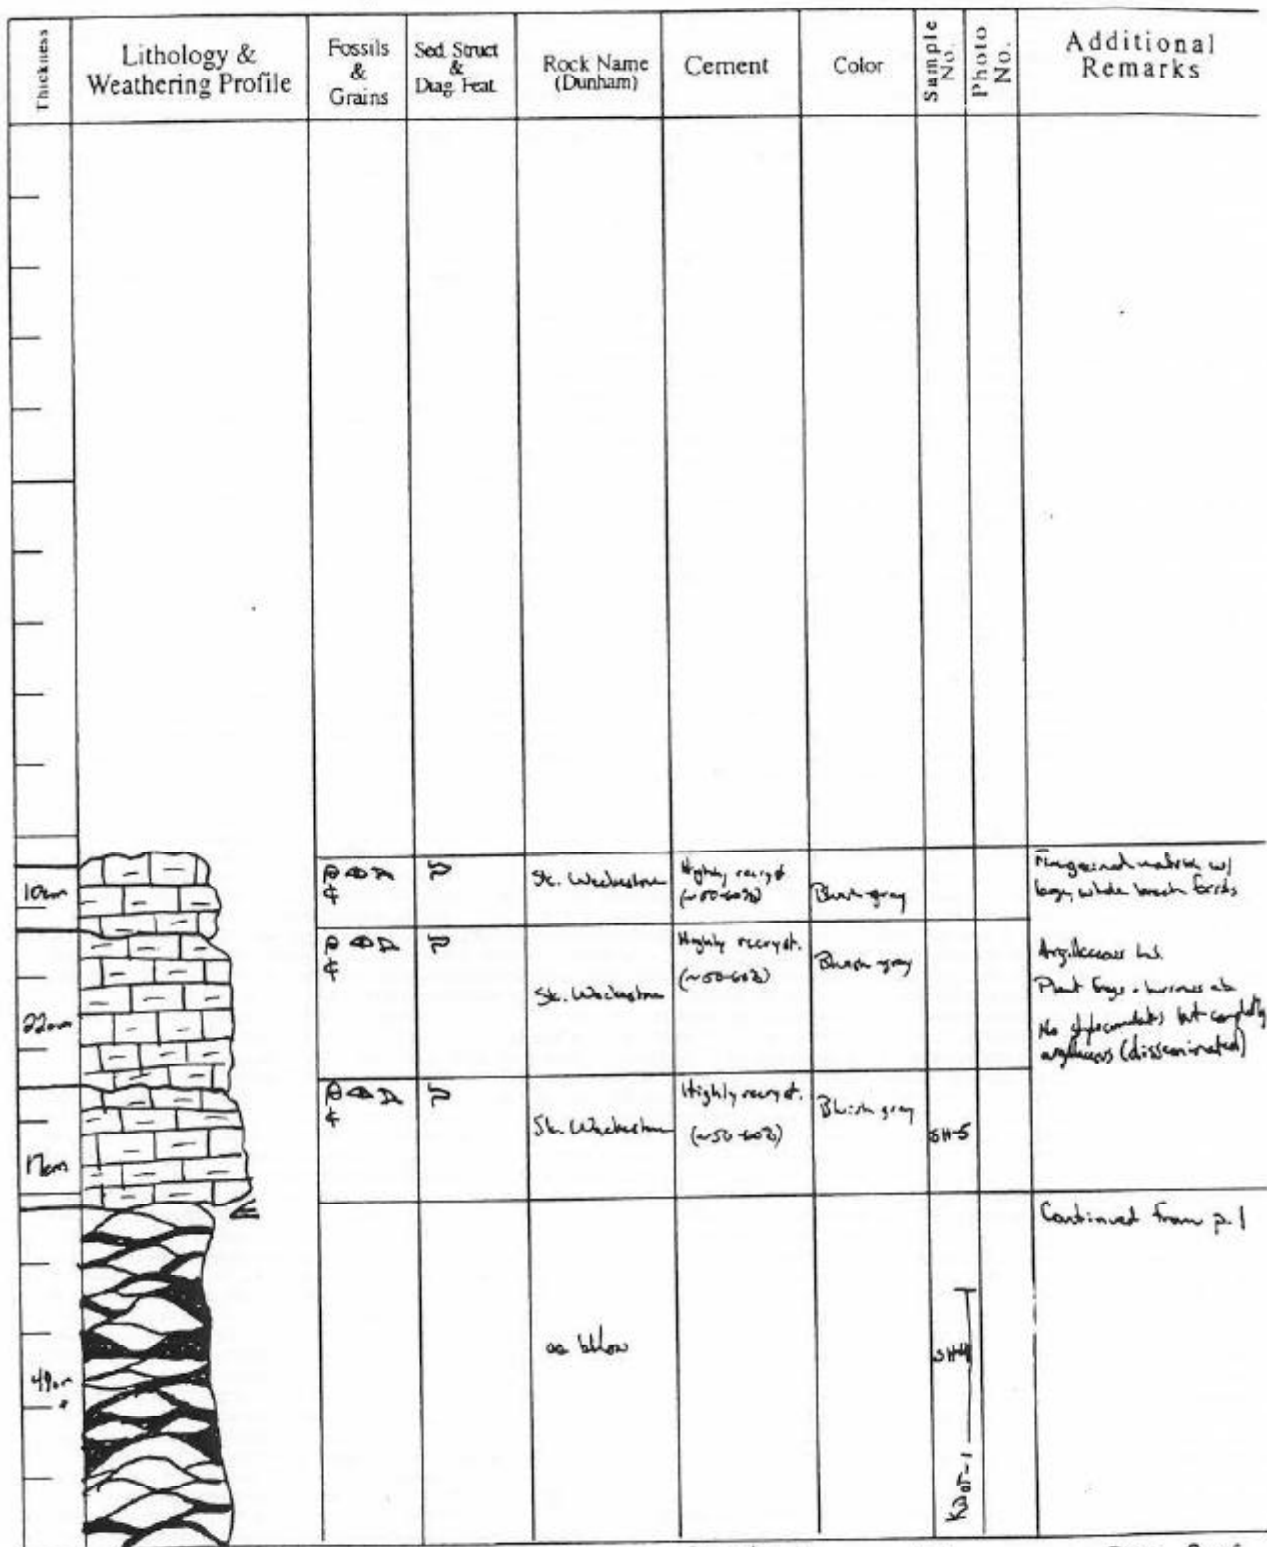 Thickness
Lithology &
Weathering Profile
Fossils
&
Grains
Sed. Struct
&
Diag. Feat.
Rock Name
(Dunham)
Cement
Color
Sample
No.
Photo
No.
Additional
Remarks
10cm
Sk. Wackestone
Highly recryst.
(~50-60%)
Bluish-gray
Finegrained matrix w/
large, whole brach fossils
22cm
Sk. Wackestone
Highly recryst.
(~50-60%)
Bluish-gray
Argillaceous Ls.
Plant frags + burrows
No but completely
argillaceous (disseminated)
17cm
Sk. Wackestone
Highly recryst.
(~50-60%)
Bluish gray
SH-5
49cm
as below
SH-4
KDOT-1
Continued from p. 1